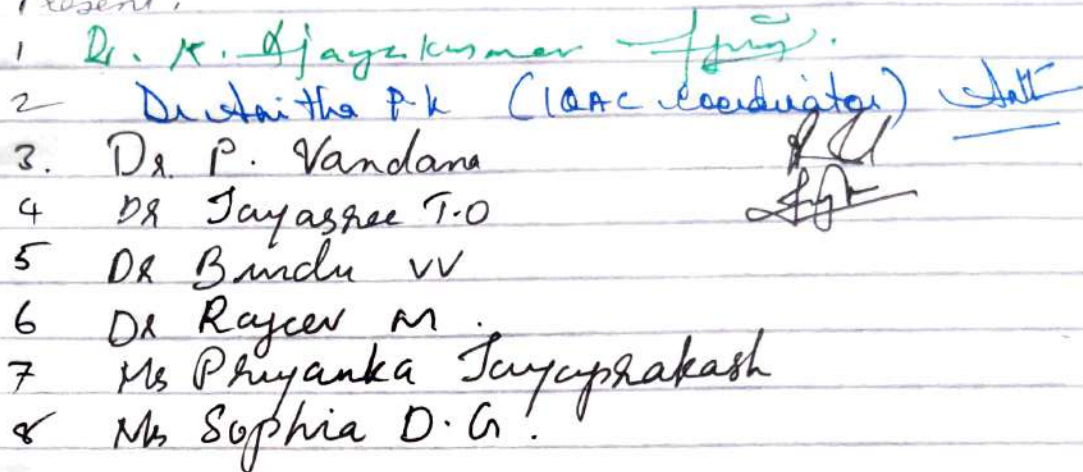 Present :
1 Dr. K. Ajayakumar
2 Dr Anitha P.k (IQAC coordinator)
3. Dr. P. Vandana
4 Dr Jayasree T.O
5 Dr Bindu VV
6 Dr Rajeev M.
7 Ms Priyanka Jayaprakash
8 Ms Sophia D.G.